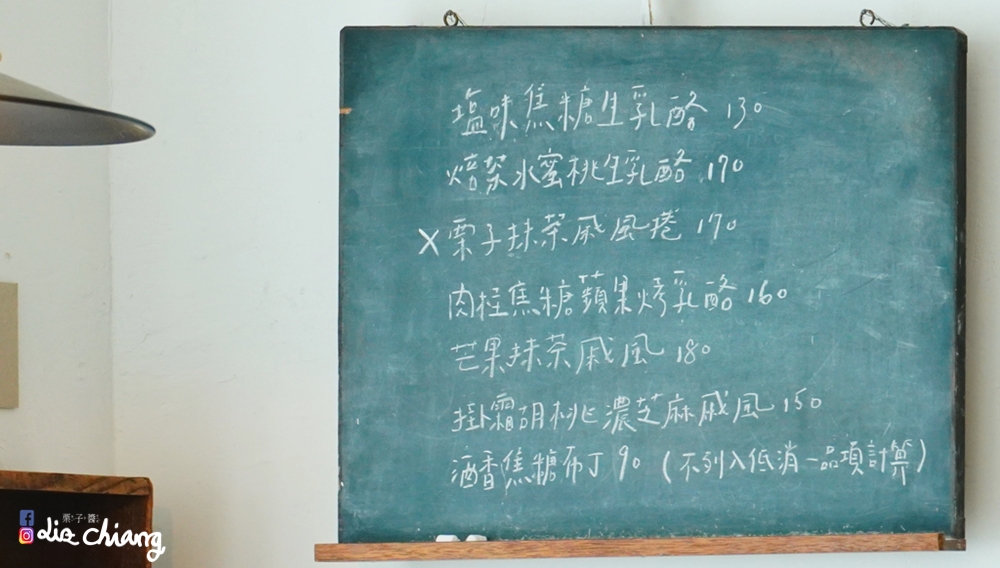 塩味焦糖生乳酪 130
焙茶水蜜桃生乳酪 170
X 栗子抹茶戚風捲 170
肉桂焦糖蘋果烤乳酪 160
芒果抹茶戚風 180
掛霜胡桃濃芝麻戚風 150
酒香焦糖布丁 90 (不列入低消一品項計算)
栗子醬
dia chiang